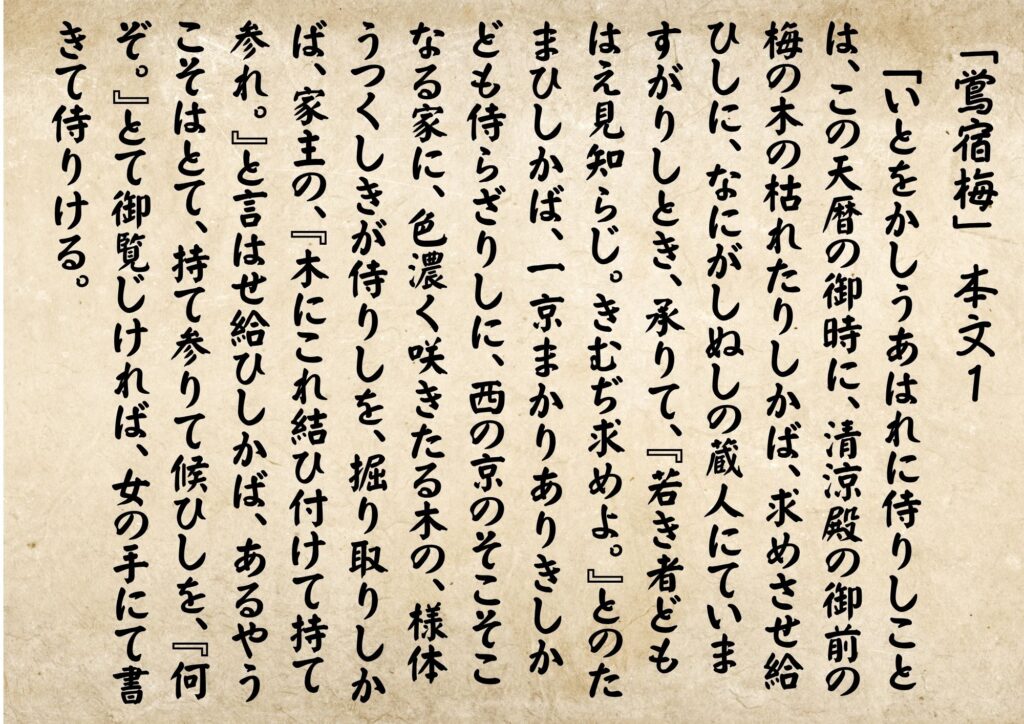 「鶯宿梅」　本文１
「いとをかしうあはれに侍りしこと
は、この天暦の御時に、清涼殿の御前の
梅の木の枯れたりしかば、求めさせ給
ひしに、なにがしぬしの蔵人にていま
すがりしとき、承りて、『若き者ども
はえ見知らじ。きむぢ求めよ。』とのた
まひしかば、一京まかりありきしか
ども侍らざりしに、西の京のそこそこ
なる家に、色濃く咲きたる木の、様体
うつくしきが侍りしを、掘り取りしか
ば、家主の、『木にこれ結ひ付けて持て
参れ。』と言はせ給ひしかば、あるやう
こそはとて、持て参りて候ひしを、『何
ぞ。』とて御覧じければ、女の手にて書
きて侍りける。